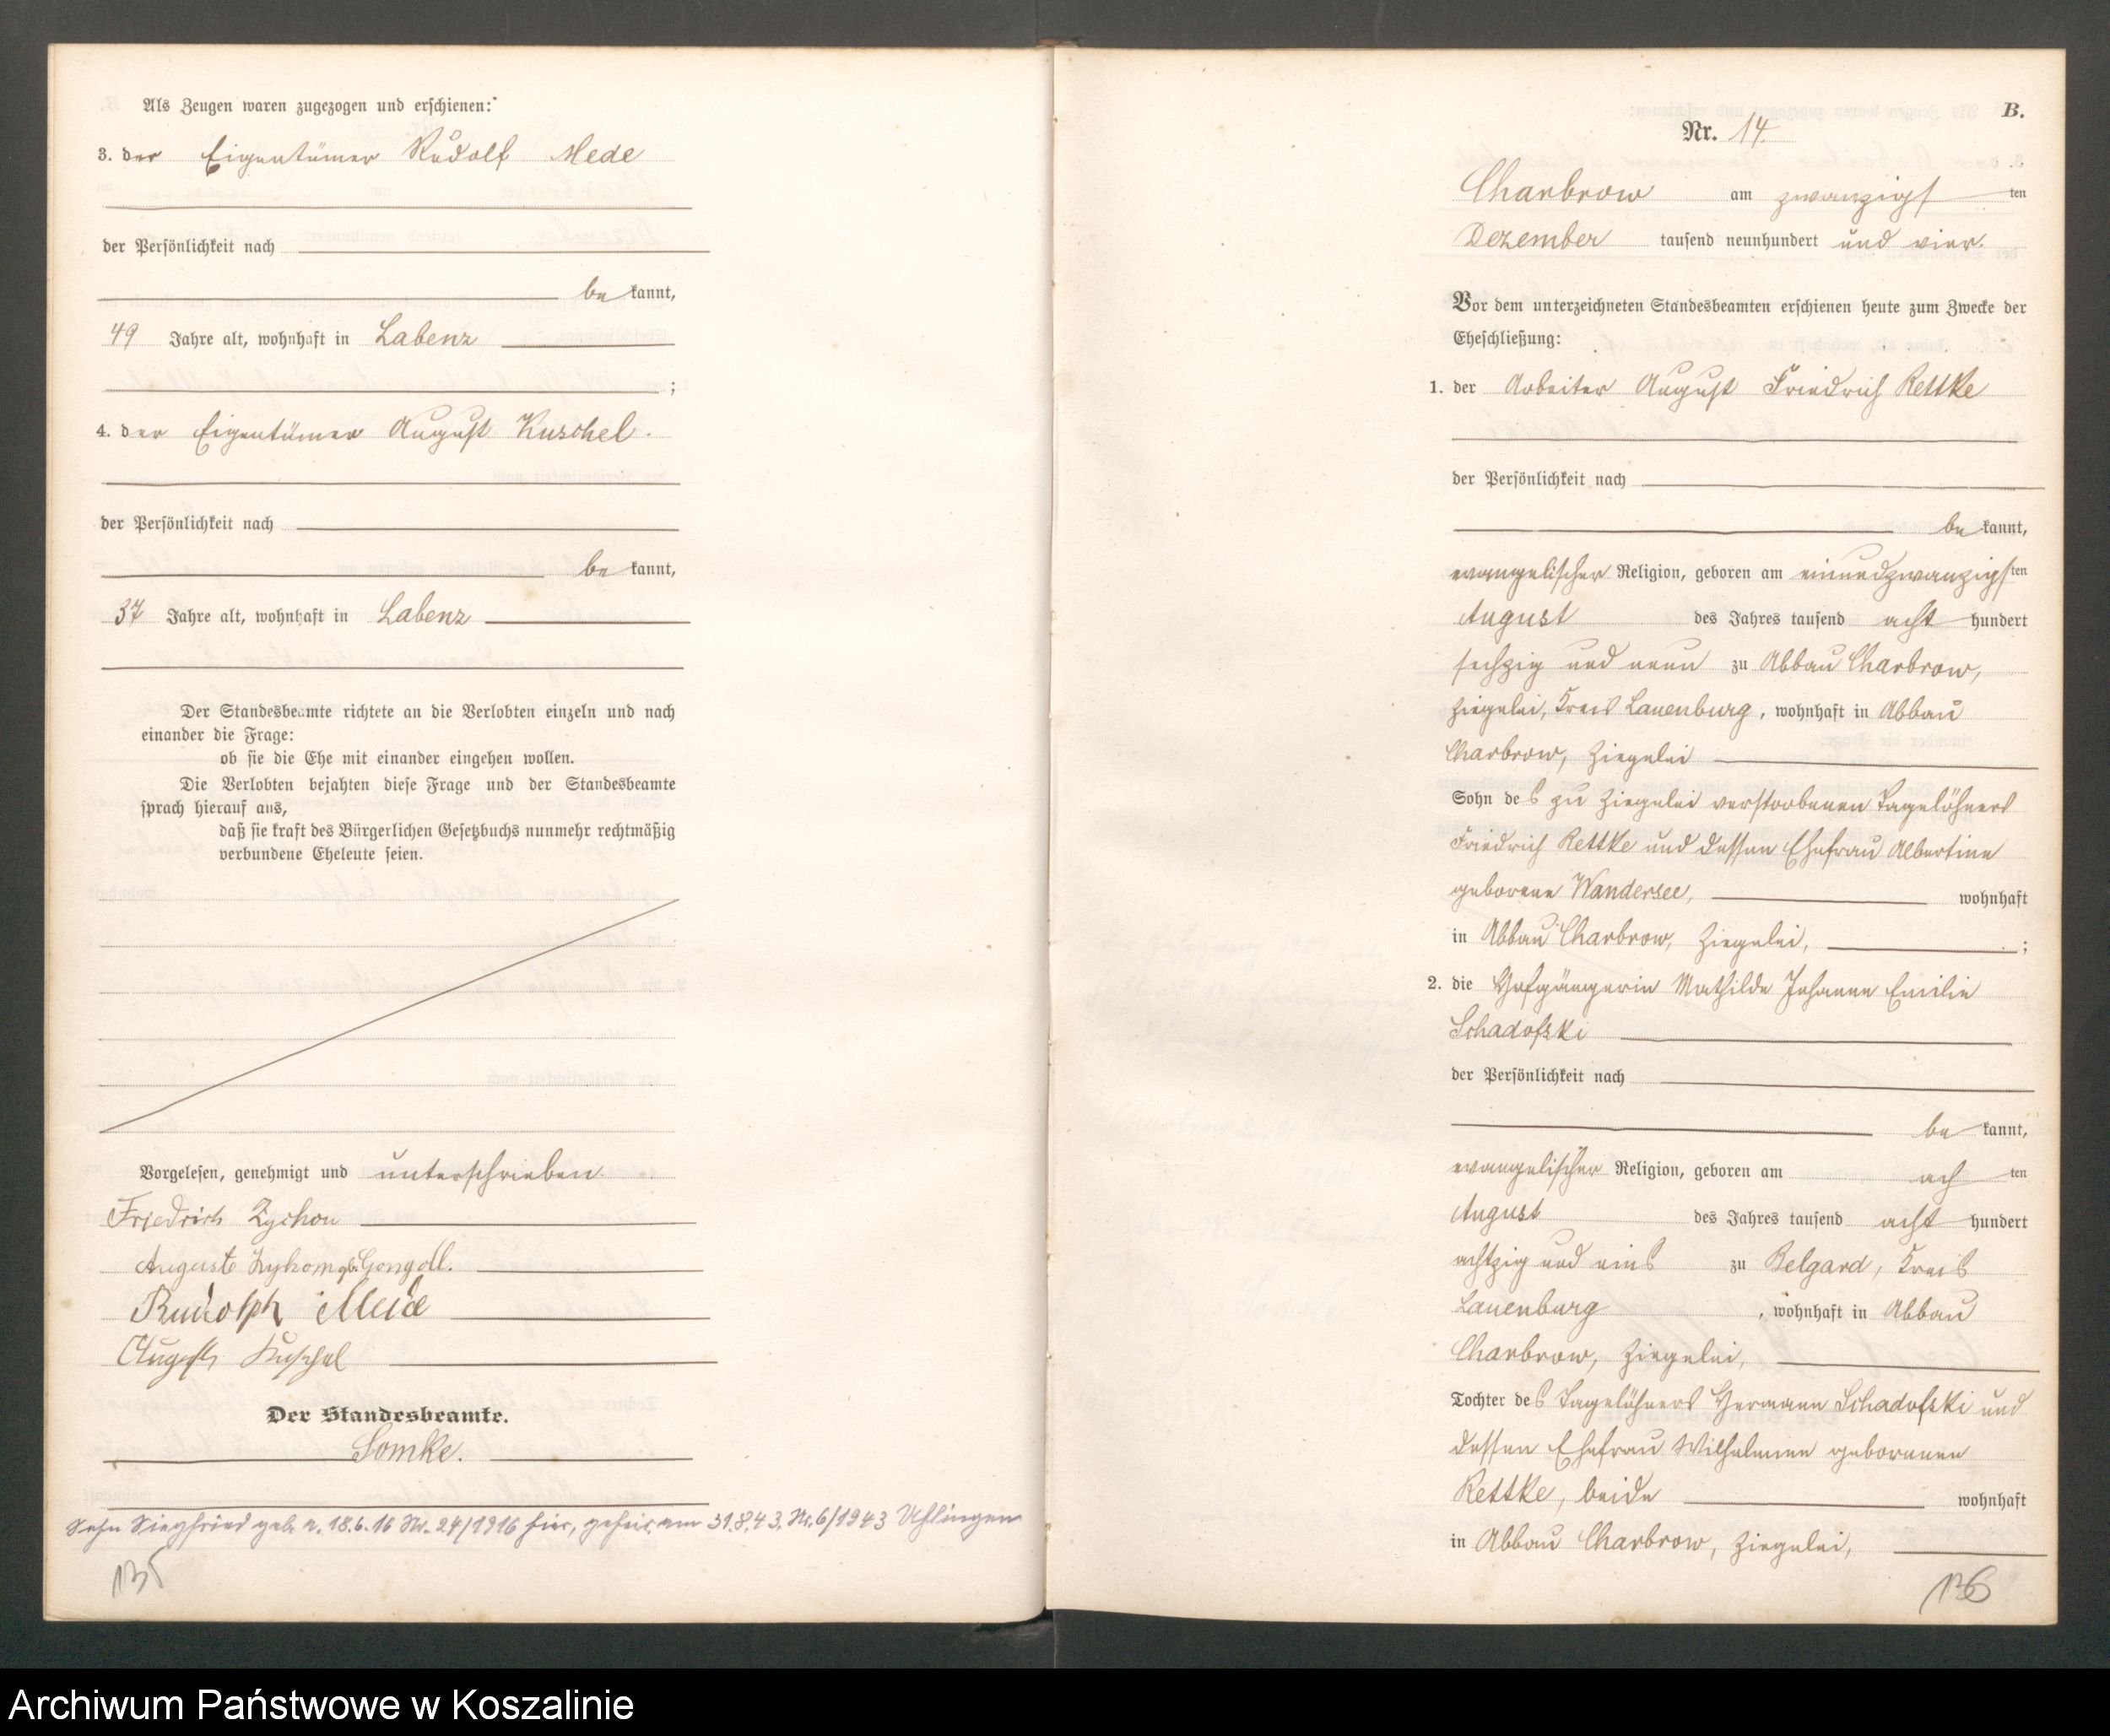 Als Zeugen waren zugezogen und erschienen:
3. der Eigentümer Rudolf Mede
der Persönlichkeit nach
be kannt,
49 Jahre alt, wohnhaft in Labenz
;
4. der Eigentümer August Kuschel.
der Persönlichkeit nach
be kannt,
37 Jahre alt, wohnhaft in Labenz
Der Standesbeamte richtete an die Verlobten einzeln und nach
einander die Frage:
ob sie die Ehe mit einander eingehen wollen.
Die Verlobten bejahten diese Frage und der Standesbeamte
sprach hierauf aus,
daß sie kraft des Bürgerlichen Gesetzbuchs nunmehr rechtmäßig
verbundene Eheleute seien.
Vorgelesen, genehmigt und unterschrieben.
Friedrich Zychon
Auguste geb. Gongoll.
Rudolph Mede
August Kuschel
Der Standesbeamte.
Somke.
Sohn Siegfried geb. a. 18.6.16 Nr. 24/1916 hier, geheir. am 31.8.43, Nr. 6/1943 Uhlingen
135
B.
Nr. 14.
Charbrow am zwanzigs ten
Dezember tausend neunhundert und vier.
Vor dem unterzeichneten Standesbeamten erschienen heute zum Zwecke der
Eheschließung:
1. der Arbeiter August Friedrich Rettke
der Persönlichkeit nach
be kannt,
evangelischer Religion, geboren am einundzwanzigs ten
August des Jahres tausend acht hundert
sechzig und neun zu Abbau Charbrow,
Ziegelei, Kreis Lauenburg, wohnhaft in Abbau
Charbrow, Ziegelei
Sohn des zu Ziegelei verstorbenen Tagelöhners
Friedrich Rettke und dessen Ehefrau Albertine
geborene Wandersee, wohnhaft
in Abbau Charbrow, Ziegelei, ;
2. die Hofgängerin Mathilde Johanne Emilie
Schadofski
der Persönlichkeit nach
be kannt,
evangelischer Religion, geboren am ach ten
August des Jahres tausend acht hundert
achtzig und eins zu Belgard, Kreis
Lauenburg, wohnhaft in Abbau
Charbrow, Ziegelei,
Tochter des Tagelöhners Hermann Schadofski und
dessen Ehefrau Wilhelmine geborenen
Rettke, beide wohnhaft
in Abbau Charbrow, Ziegelei,
136
Archiwum Państwowe w Koszalinie